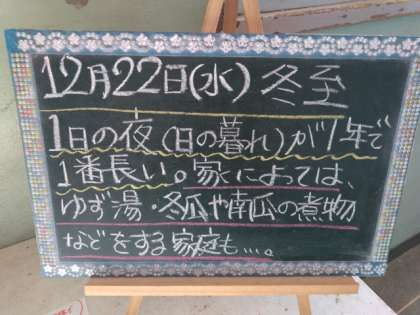 12月22日(水) 冬至
1日の夜(日の暮れ)が1年で
1番長い。家によっては、
ゆず湯・冬瓜や南瓜の煮物
などをする家庭も…。